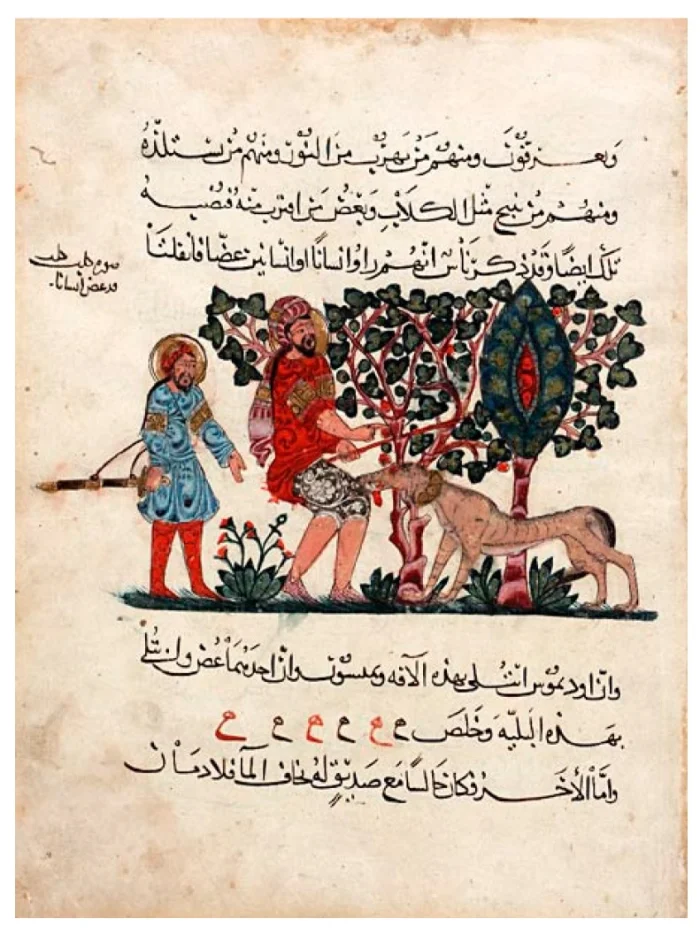 ويعرقون ومنهم من يهرب من النور ومنهم من يستلذه
ومنهم من ينبح مثل الكلاب وبعض من اقترب منه فصيبه
تلك ايضًا وقد ذكر ناس انهم راوا انسانًا او انسانين عضا فانفلتا
صورة كلب كلب
قد عض انسانا
وان اوديموس ابتلى بهذه الآفة وان احدهما عض وابتلى
بهذه البلية وخلص
واما الآخر فكان جالسًا مع صديق له يخاف الما